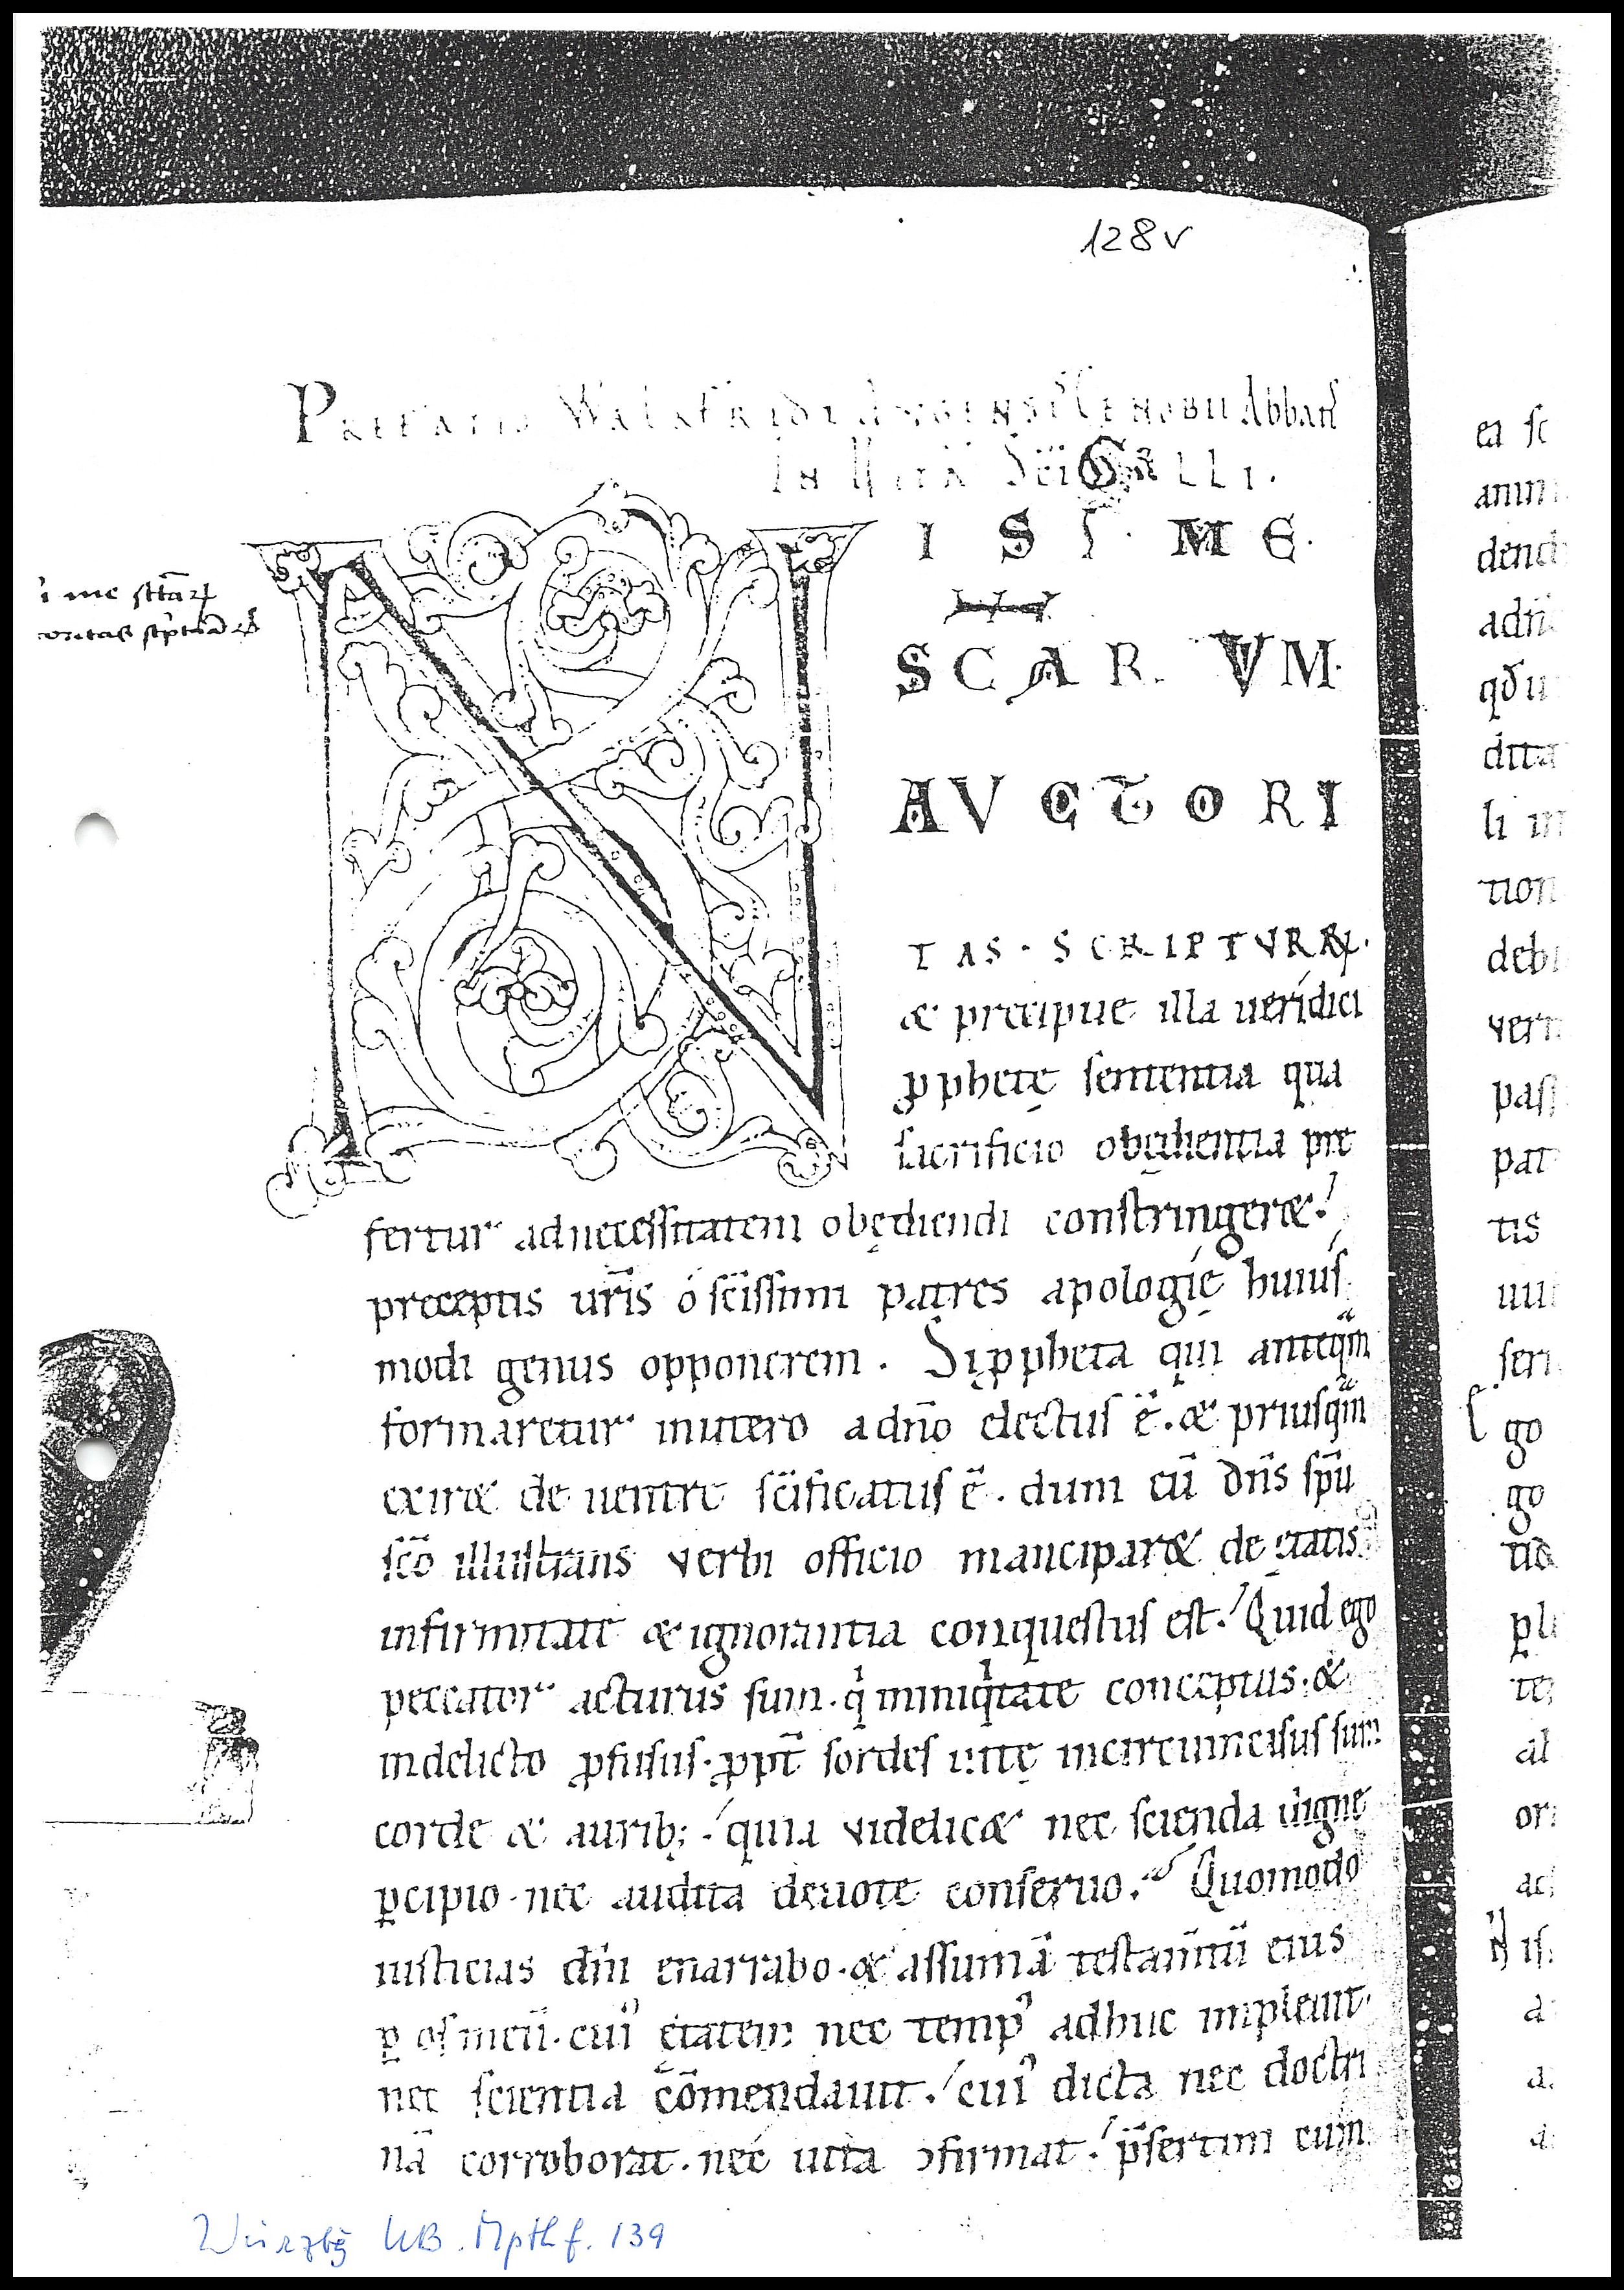 128v
Prefatio Walafridi Augiensis Cenobii Abbatis
In Uita Sc̄i Galli.
NISI ME
SCARVM
AVCTORI
TAS · SCRIPTVRARꝜ.
& precipue illa ueridici
ꝓphetę sententia qua
sacrificio obędientia pre
fertur ad necessitatem obędiendi constringeret
preceptis ur̄is ó sc̄issimi patres apologię huius
modi genus opponerem. Si ꝓpheta qui anteqͣm
formaretur in utero a dn̄o electus ē. & priusqͣm
exiret de uentre sc̄ificatus ē. dum cū dn̄s sp̄u
sc̄o illustrans verbi officio manciparet de ętatis
infirmitate & ignorantia conquestus est. Quid ego
peccator acturus sum. qͥ in iniqͥtate conceptus. &
in delicto ꝓfusus. ꝓpt̄ sordes uitę incircumcisus sum
corde & aurib; quia videlicet nec scienda digne
ꝑcipio. nec audita deuote conseruo. Quomodo
iusticias dn̄i enarrabo. & assumā testam̄tū eius
ꝑ os meū. cui᾿ ętatem nec temp᾿ adhuc impleuit.
nec scientia cōmendauit. cui᾿ dicta nec doctri
nā corroborat. nec uita ↄfirmat. p̄sertim cum
Würzbg UB. Mpthf. 139